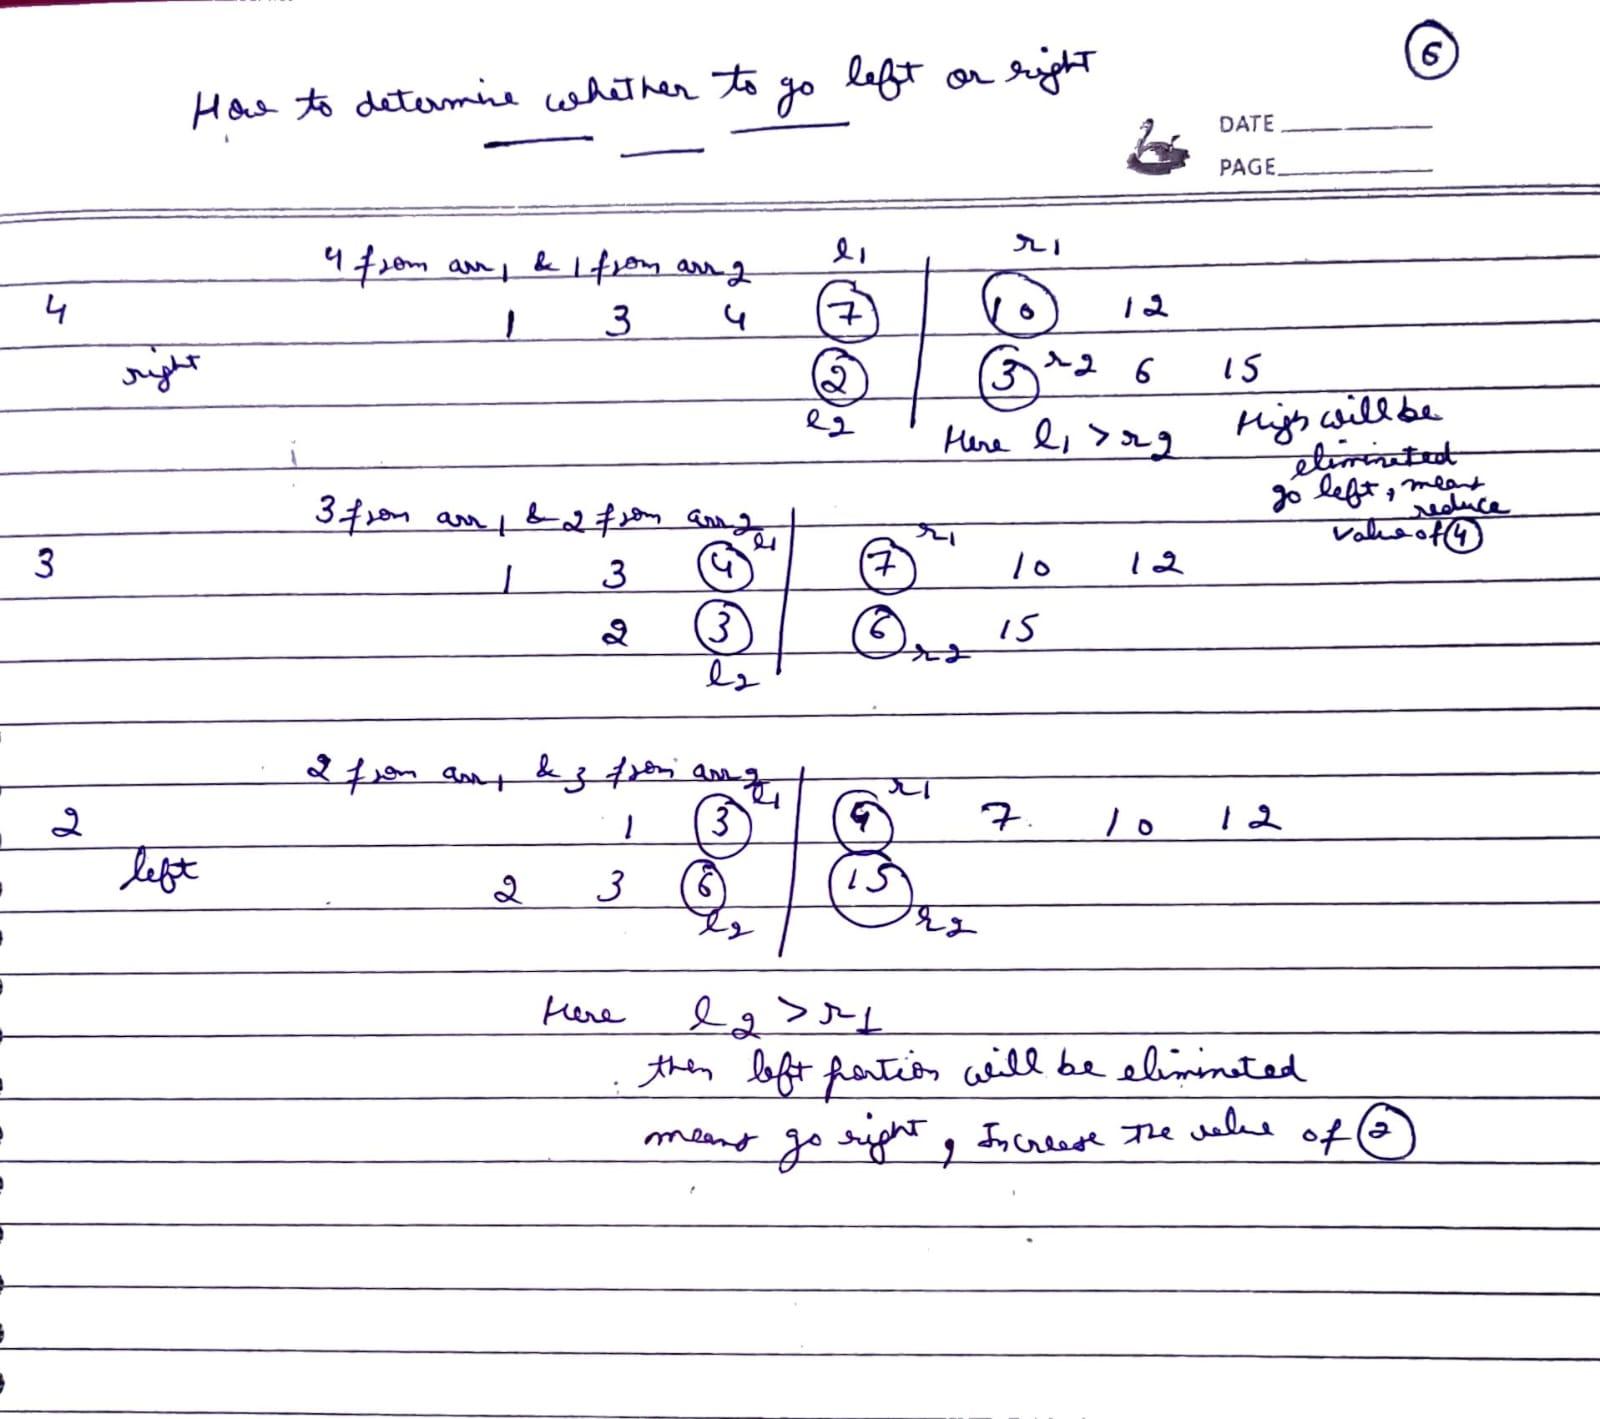 6
How to determine whether to go left or right
DATE
PAGE
4 from arr1 & 1 from arr2 l1 r1
4 1 3 4 7 10 12
right 2 3 r2 6 15
l2 Here l1 > r2 High will be
eliminated
go left, means
reduce
value of 4
3 from arr1 & 2 from arr2
3 1 3 4 l1 7 r1 10 12
2 3 6 r2 15
l2
2 from arr1 & 3 from arr2
2 1 3 l1 4 r1 7 10 12
left 2 3 6 15
l2 r2
Here l2 > r1
then left portion will be eliminated
means go right, Increase the value of 2